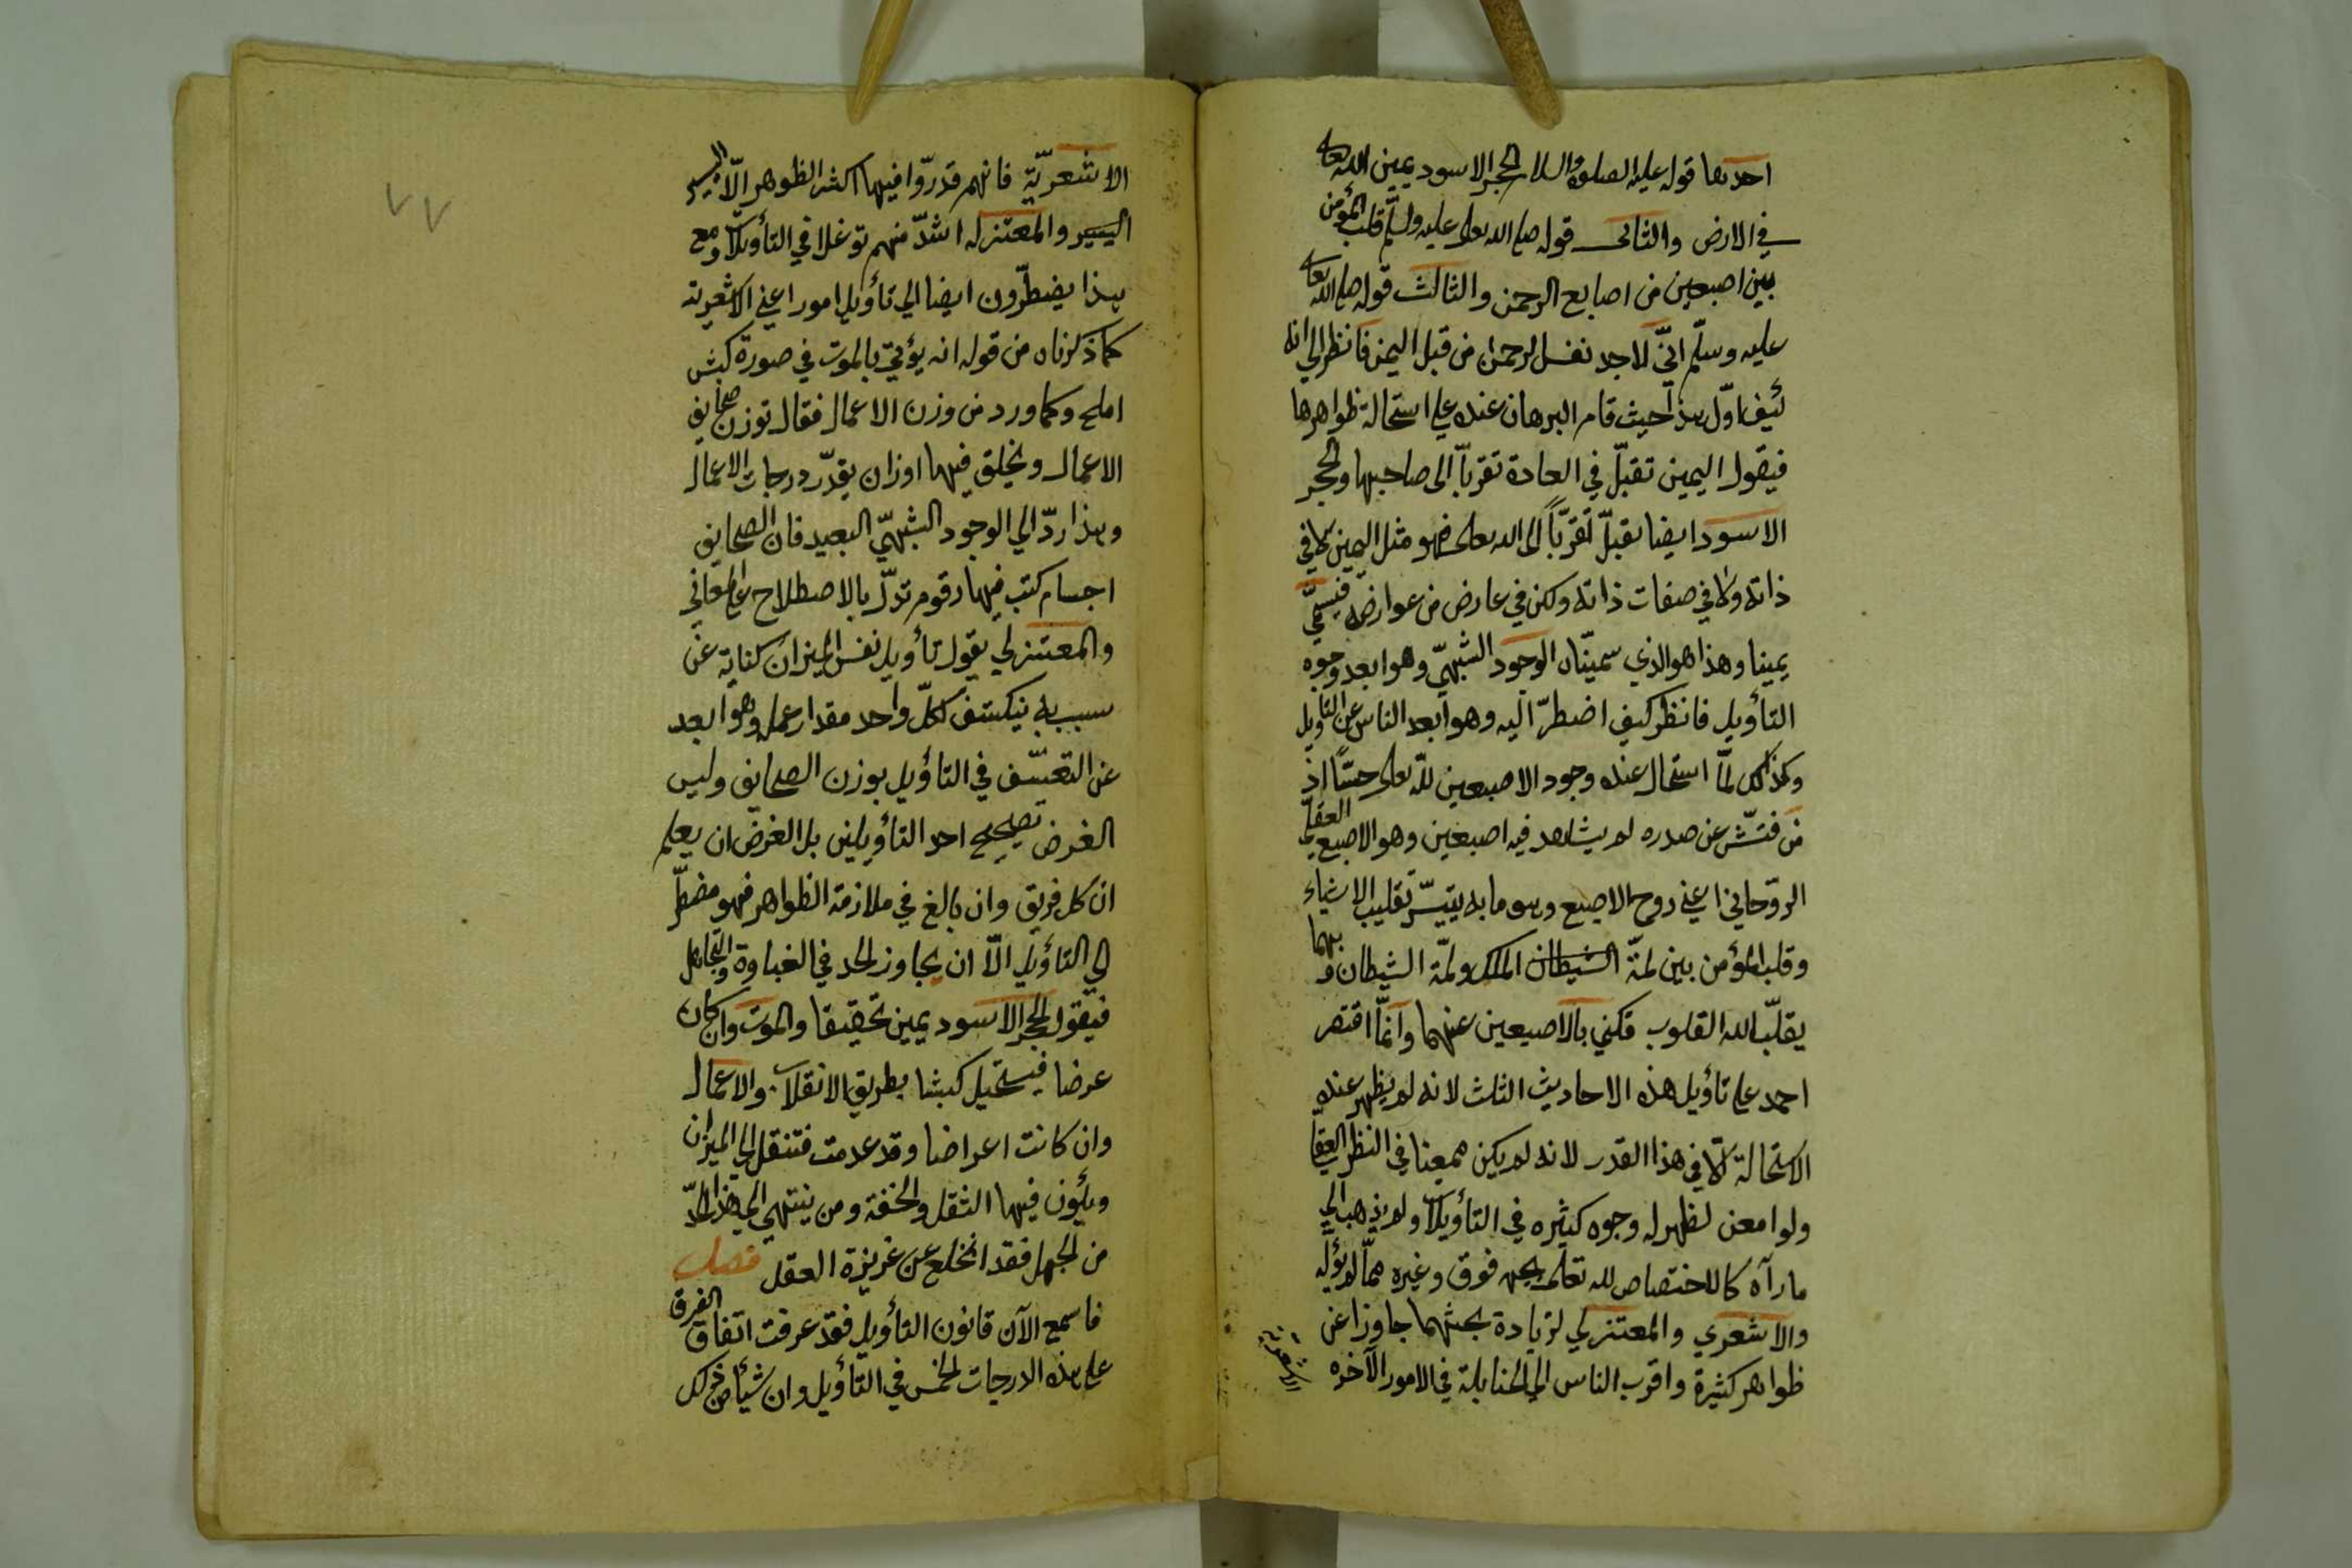 احدىها قوله عليه الصلوة والسلام الحجر الاسود يمين الله تعالى
في الارض والثانى قوله صلى الله تعالى عليه وسلم قلب المؤمن
بين اصبعين من اصابع الرحمن والثالث قوله صلى الله تعالى
عليه وسلّم انّي لاجد نفس الرحمن من قبل اليمن فانظر الى انه
كيف اوّل هذا حيث قام البرهان عنده على استحالة ظواهرها
فيقول اليمين تقبّل في العادة تقرباً الى صاحبها والحجر
الاسود ايضا يقبلّ تقرّباً الى الله تعالى فهو مثل اليمين لا في
ذاته ولا في صفات ذاته ولكن في عارض من عوارضه فيسمّى
يمينا وهذا هو الذي سميّناه الوجود الشبهيّ وهو ابعد وجوه
التأويل فانظر كيف اضطرّ اليه وهو ابعد الناس عن التأويل
وكذلك لمّا استحال عنده وجود الاصبعين للّه تعالى حسّاً اذ
من فتّش عن صدره لم يشاهد فيه اصبعين وهو الاصبع العقليّ
الروّحاني اعني روح الاصبع وهو ما به يتيسّر تقليب الاشياء
وقلب المؤمن بين لمّة الشيطان الملك ولمّة الشيطان وبهما
يقلّب الله القلوب فكني بالاصبعين عنهما وانّما اقتصر
احمد على تأويل هذه الاحاديث الثلث لانه لم يظهر عنده
الاستحالة الّا في هذا القدر لانه لم يكن ممعنا في النظر العقليّ
ولو امعن لظهر له وجوه كثيره في التأويلات ولم يذهب الى
ما رآه كالاختصاص لله تعالى بجهه فوق وغيره ممّا لم يؤله
والاشعري والمعتزلي لزيادة بحثهما جاوزا عن
ظواهر كثيرة واقرب الناس الى الحنابلة في الامور الآخره
الاشعرية
٧٧
الاشعريّة فانهم قدروّا فيها اكثر الظوهر الّا اليسير
اليسير والمعتزله اشدّ منهم توغلا في التأويلات ومع
هذا يضطرّون ايضا الى تأويل امور اعني الاشعرية
كما ذكرناه من قوله انه يؤتى بالموت في صورة كبش
املح وكما ورد من وزن الاعمال فقال توزن صحايف
الاعمال ويخلق فيها اوزان يقدّر درجات الاعمال
وهذا ردّ الى الوجود الشبهيّ البعيد فان الصحايف
اجسام كتب فيها رقوم تدّل بالاصطلاح على المعاني
والمعتزلي يقول تأويل نفس الميزان كناية عن
سبب به ينكشف لكلّ واحد مقدار عمله وهو ابعد
عن التعسّف في التأويل بوزن الصحايف وليس
الغرض تصحيح احد التأويلين بل الغرض ان يعلم
ان كل فريق وان بالغ في ملازمة الظواهر فهو مضطّر
الى التأويل الّا ان يجاوز الحد في الغباوة والتجاهل
فيقول الحجر الاسود يمين تحقيقا والموت وان كان
عرضا فيستحيل كبشا بطريق الانقلاب والاعمال
وان كانت اعراضا وقد عدمت فتنقل الى الميزان
ويكون فيها الثقل والخفة ومن ينتهى الى هذا الحدّ
من الجهل فقد انخلع عن غريزة العقل فصل
فاسمع الآن قانون التأويل فقد عرفت اتفاق الفرق
على هذه الدرجات الخمس في التأويل وان شيأ من كل